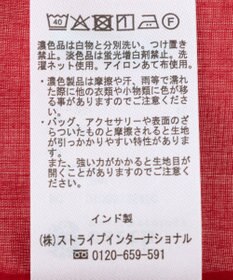 40 P F
濃色品は白物と分別洗い。つけ置き
禁止。淡色は蛍光増白剤禁止。洗
濯ネット使用。アイロンあて布使用。
・濃色製品は摩擦や汗、雨等で濡れ
た際に他の衣類や小物類に色が移
る事がありますのでご注意くださ
い。
・バッグ、アクセサリーや表面のざ
らついたものと摩擦されると生地
が引っかかりやすい特性がありま
す。
また、強い力がかかると生地目が
開くことがありますのでご注意く
ださい。
インド製
(株)ストライプインターナショナル
0120-659-591